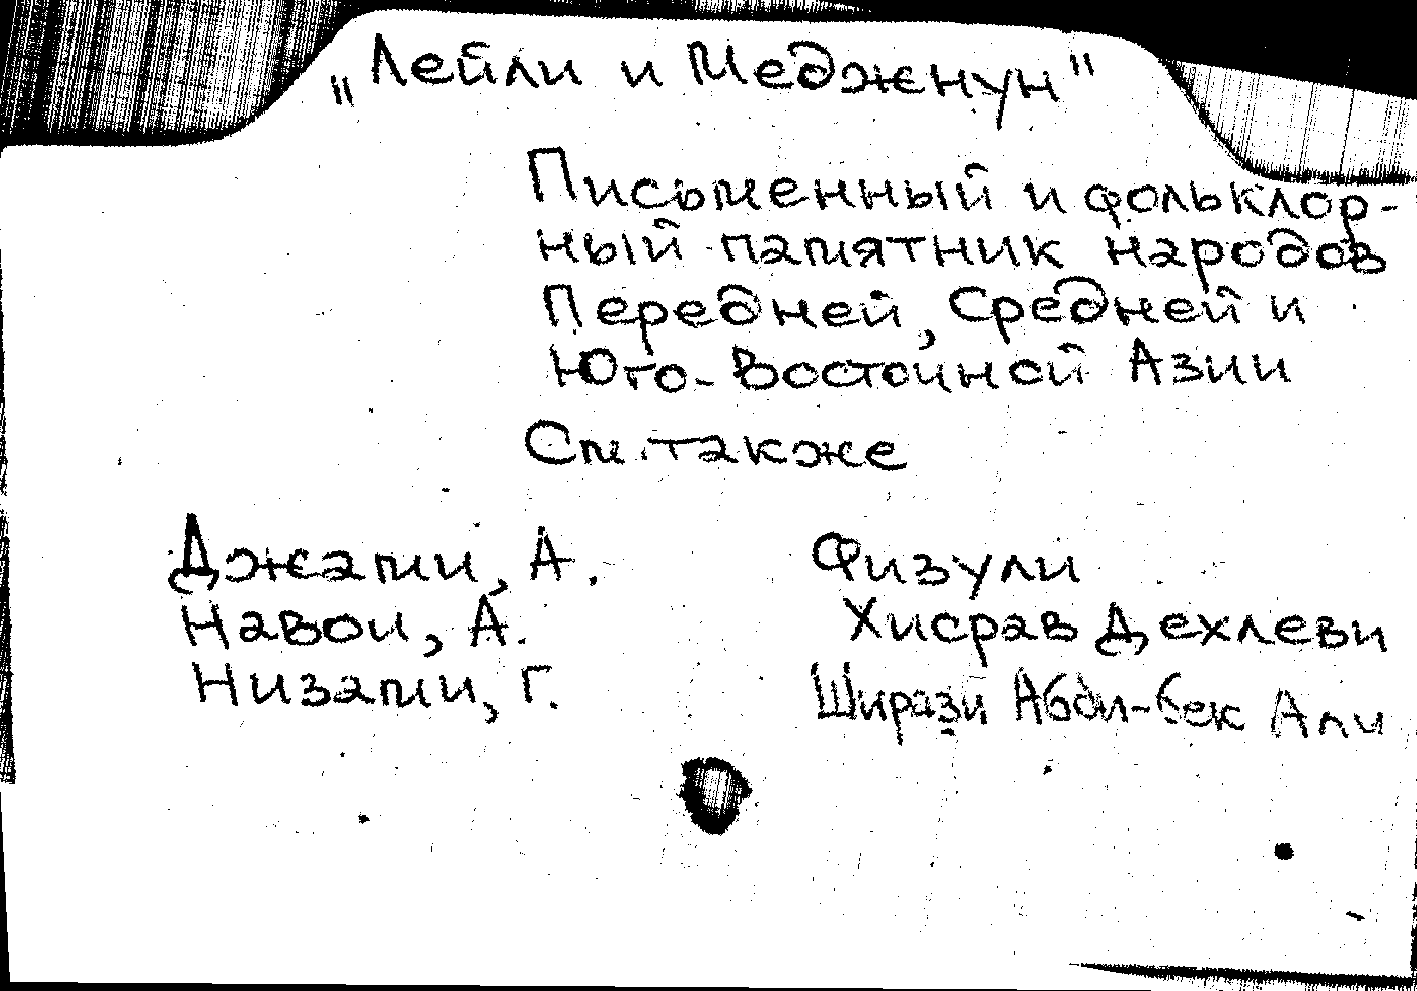 „Лейли и Меджнун"
Письменный и фольклор-
ный памятник народов
Передней, Средней и
Юго-Восточной Азии
См. также
Джами, А.
Навои, А.
Низами, Г.
Физули
Хисрав Дехлеви
Ширази Абди-бек Али